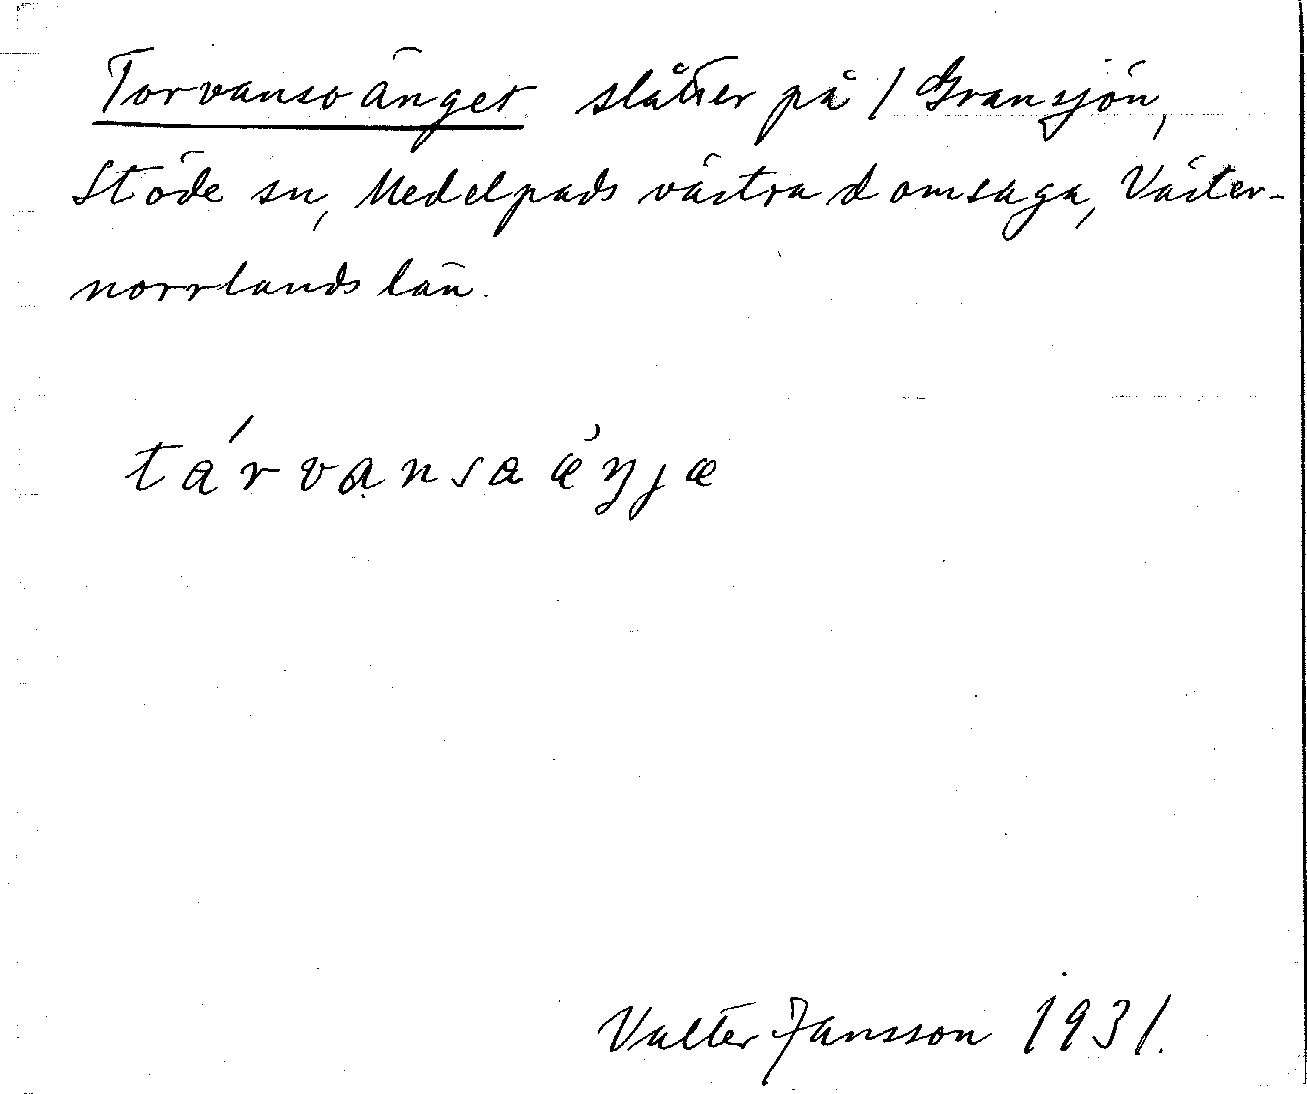 Torvansoänget slåtter på / Gransjön,
Stöde sn, Medelpads västra domsaga, Väster-
norrlands län.
tárvansaæ̀ŋjæ
Valter Jansson 1931.